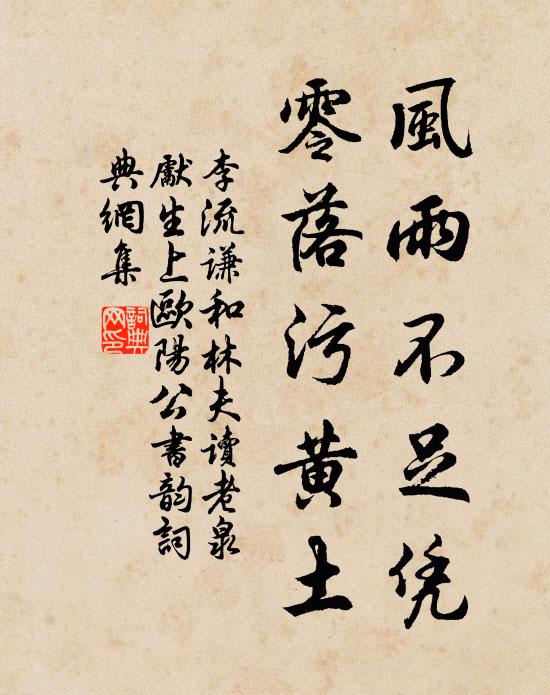 風雨不足凭
零落污黄土
李流谦和林夫讀老泉
獻生上歐陽公書韵詞
典網集
詞典
网印